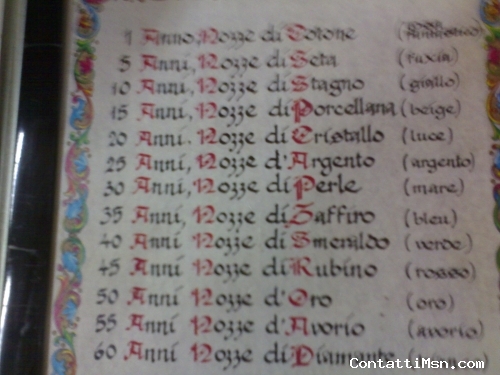 1 Anno, Nozze di Cotone
5 Anni, Nozze di Seta (fuxia)
10 Anni, Nozze di Stagno (giallo)
15 Anni, Nozze di Porcellana (beige)
20 Anni, Nozze di Cristallo (luce)
25 Anni, Nozze d'Argento (argento)
30 Anni, Nozze di Perle (mare)
35 Anni, Nozze di Zaffiro (bleu)
40 Anni, Nozze di Smeraldo (verde)
45 Anni Nozze di Rubino (rosso)
50 Anni Nozze d'Oro (oro)
55 Anni Nozze d'Avorio (avorio)
60 Anni Nozze di Diamante
ContattiMsn.com